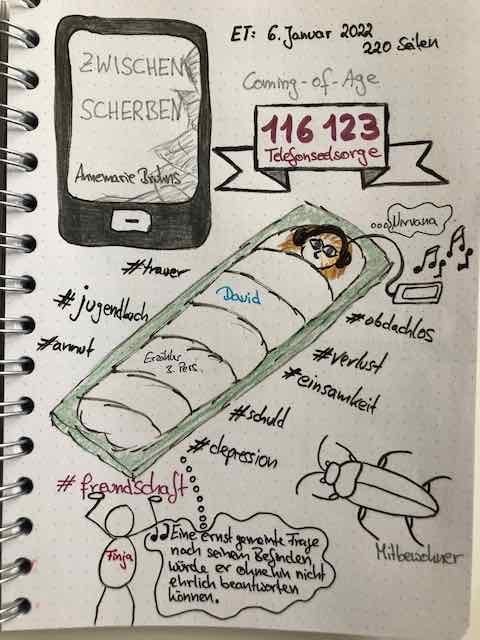 ET: 6. Januar 2022
220 Seiten
ZWISCHEN
SCHERBEN
Annemarie Bruhns
Coming-of-Age
116 123
Telefonseelsorge
Nirvana
#trauer
#jugendbuch
#armut
David
Erzähler
3. Pers.
#obdachlos
#verlust
#einsamkeit
#schuld
#depression
#freundschaft
Finja
Eine ernst gemeinte Frage
nach seinem Befinden
würde er ohnehin nicht
ehrlich beantworten
können.
Mitbewohner